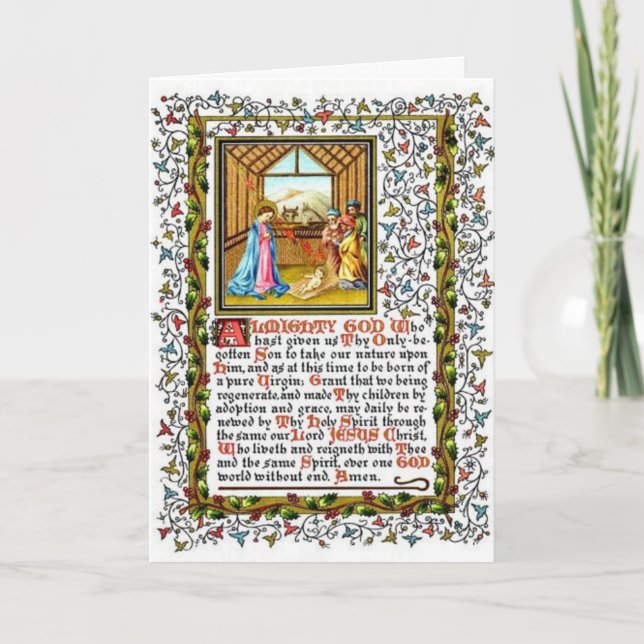 ALMIGHTY GOD Who
hast given us Thy Only-be-
gotten Son to take our nature upon
him, and as at this time to be born of
a pure Virgin; Grant that we being
regenerate, and made Thy children by
adoption and grace, may daily be re-
newed by Thy Holy Spirit through
the same our Lord JESUS Christ,
Who liveth and reigneth with Thee
and the same Spirit, ever one GOD
world without end. Amen.